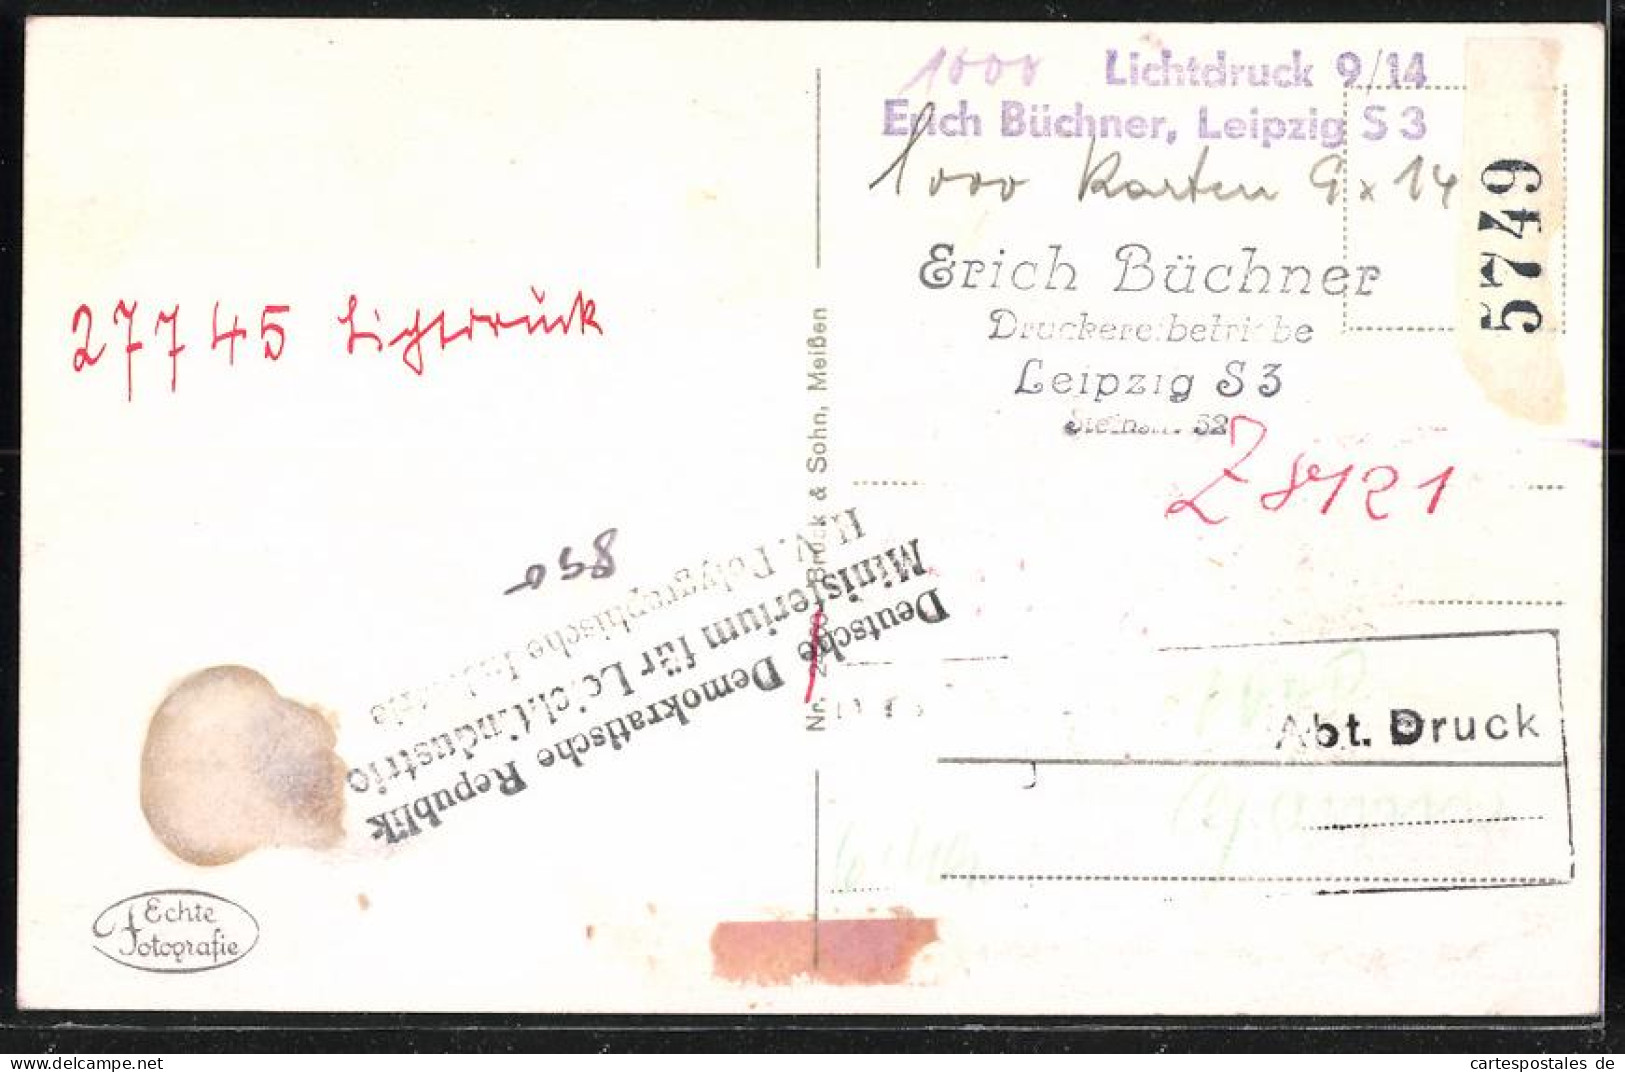 1000 Lichtdruck 9/14
Erich Büchner, Leipzig S 3
1000 Karten 9 x 14
5749
Erich Büchner
Druckereibetriebe
Leipzig S 3
Steinstr. 52
27745 Lichtdruck
Z 8121
Brück & Sohn, Meißen
Nr.
Deutsche Demokratische Republik
Ministerium für Leichtindustrie
H. V. Polygraphische Industrie
Abt. Druck
Echte
Fotografie
cartespostales de